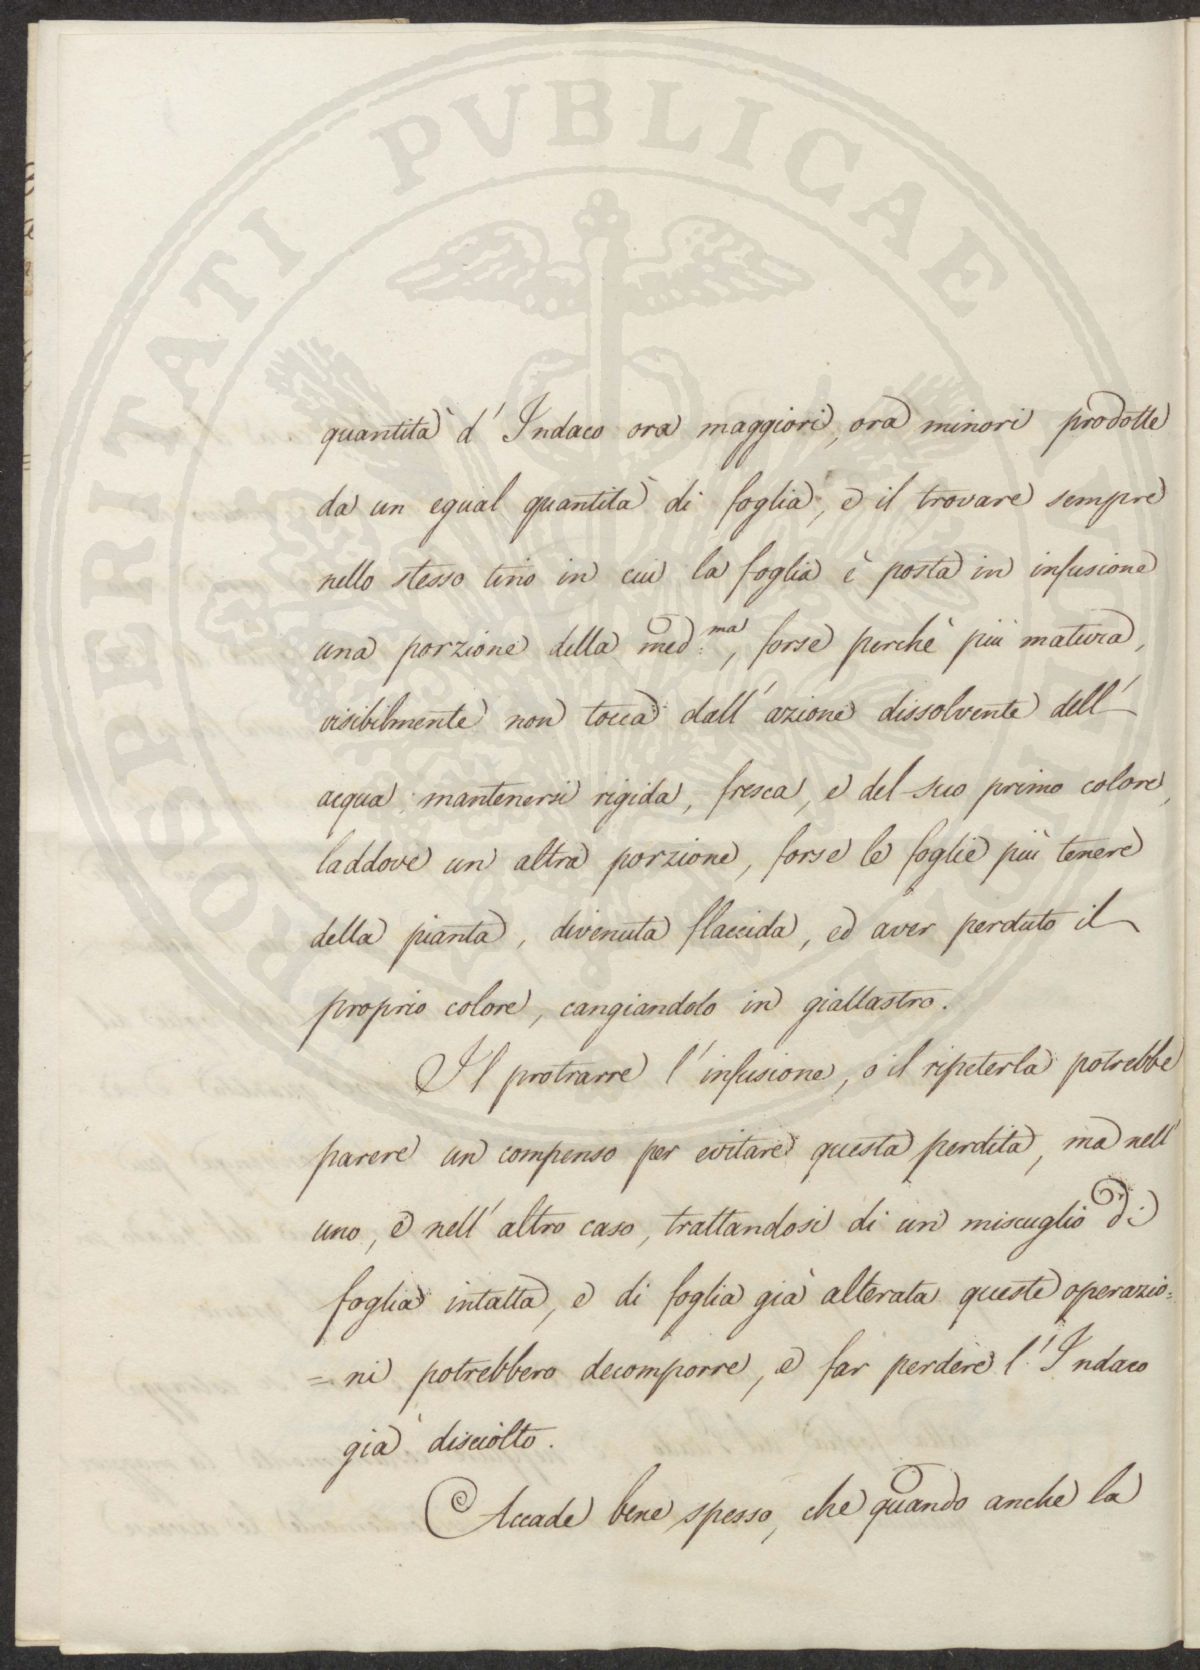 PROSPERITATI PVBLICAE
quantità d'Indaco ora maggiori, ora minori prodotte
da un egual quantità di foglia, e il trovare sempre
nello stesso tino in cui la foglia è posta in infusione
una porzione della med:ma, forse perchè più matura,
visibilmente non tocca dall'azione dissolvente dell'
acqua mantenersi rigida, fresca, e del suo primo colore,
laddove un altra porzione, forse le foglie più tenere
della pianta, divenuta flaccida, ed aver perduto il
proprio colore, cangiandolo in giallastro.
Il protrarre l'infusione, o il ripeterla potrebbe
parere un compenso per evitare questa perdita, ma nell'
uno, e nell'altro caso, trattandosi di un miscuglio di
foglia intatta, e di foglia già alterata queste operazio=
=ni potrebbero decomporre, e far perdere l'Indaco
già disciolto.
Accade bene spesso, che quando anche la